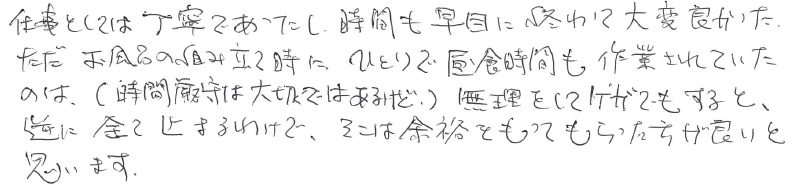 仕事としては丁寧であったし、時間も早目に終わって大変良かった。
ただ お風呂の組み立て時に、ひとりで昼食時間も作業されていた
のは、(時間厳守は大切ではあるけど。) 無理をしてケガでもすると、
逆に全て止まるわけで、そこは余裕をもってもらった方が良いと
思います。